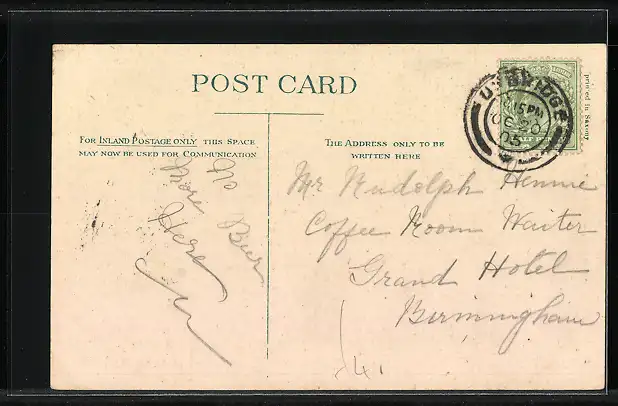 POST CARD
FOR INLAND POSTAGE ONLY THIS SPACE
MAY NOW BE USED FOR COMMUNICATION
THE ADDRESS ONLY TO BE
WRITTEN HERE
No
More Beer
Here
Mr Rudolph Hennie
Coffee Room Waiter
Grand Hotel
Birmingham
UXBRIDGE
15 PM
OC 20
05
printed in Saxony